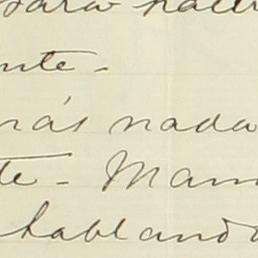 para hac
nte -
más nada
te - Mam
habland